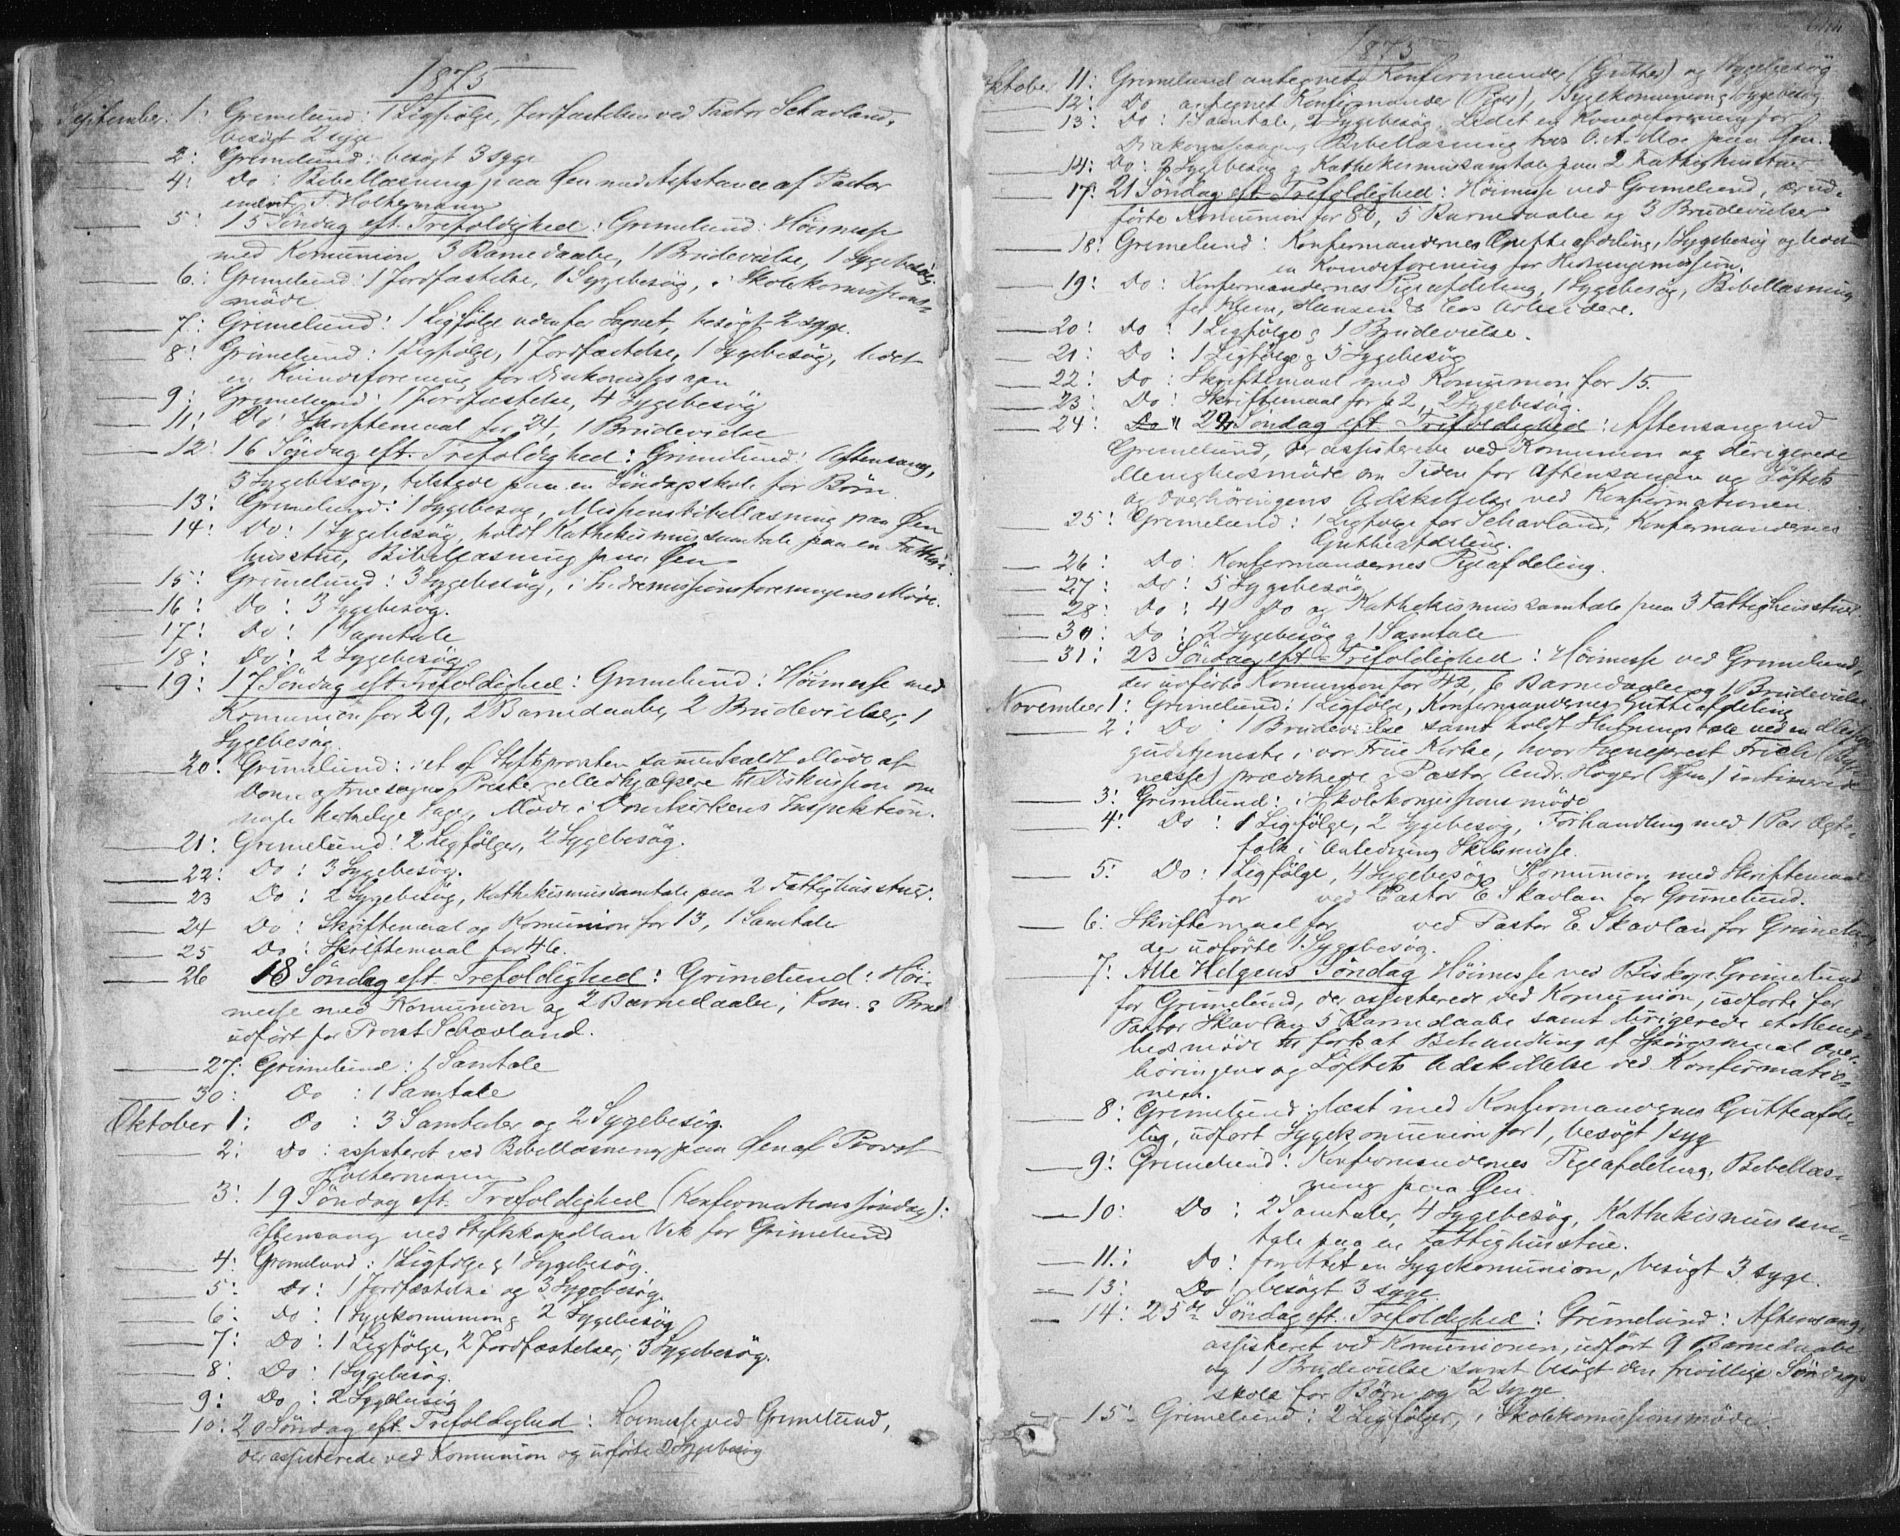 1875
September 1: Grimelund: 1 Ligfølge, Jordfæstelsen ved Pastor Schavland,
besøgt 2 syge
2: Grimelund: besøgt 3 syge
4: Do: Bibellæsning paa Øen med Assistance af Pastor
emerit. F. Holtermann
5: 15 Søndag eft. Trefoldighed: Grimelund: Høimesse
med Komunion, 3 Barnedaabe, 1 Brudevielse, 1 Sygebesøg.
6: Grimelund: 1 Jordfæstelse, 1 Sygebesøg, i Skolekomissions-
møde
7: Grimelund: 1 Ligfølge udenfor Sognet, besøgt 2 syge.
8: Grimelund: 1 Ligfølge, 1 Jordfæstelse, 1 Sygebesøg, ledet
en Kvindeforening for Diakonissesagen
9: Grimelund: 1 Jordfæstelse, 4 Sygebesøg
11: Do: Skriftemaal for 24, 1 Brudevielse
12: 16 Søndag eft. Trefoldighed: Grimelund: Aftensang,
3 Sygebesøg, tilstede paa en Søndagsskole for Børn.
13: Grimelund: 1 Sygebesøg, Missionsbibellæsning paa Øen
14: Do: 1 Sygebesøg, holdt Kathekismussamtale paa en Fattig-
husstue, Bibellæsning paa Øen
15: Grimelund: 3 Sygebesøg, i Indremissionsforeningens Møde.
16: Do: 3 Sygebesøg.
17: Do: 1 Samtale
18: Do: 2 Sygebesøg
19: 17 Søndag eft. Trefoldighed: Grimelund: Høimesse med
Komunion for 29, 2 Barnedaabe, 2 Brudevielser, 1
Sygebesøg.
20: Grimelund: i et af Stiftsprovsten sammenkaldt Møde af
Dom- og Frue sogns Præster og Medhjælpere til Diskussion om
nogle kirkelige Sager, Møde i Domkirkens Inspektion.
21: Grimelund: 2 Ligfølger, 2 Sygebesøg.
22: Do: 3 Sygebesøg.
23 Do: 2 Sygebesøg, Kathekismussamtale paa 2 Fattighusstuer.
24 Do: Skriftemaal og Komunion for 13, 1 Samtale
25 Do: Skriftemaal for 46.
26 18 Søndag eft. Trefoldighed: Grimelund: Høi-
messe med Komunion og 2 Barnedaabe, i Kom.
udført for Provst Schavland.
27: Grimelund: 1 Samtale
30: Do: 1 Samtale
Oktober 1: Do: 3 Samtaler og 2 Sygebesøg.
2: Do: assisteret ved Bibellæsning paa Øen af Provst
Holtermann
3: 19 Søndag eft. Trefoldighed (Konfirmationssøndag):
Aftensang ved Stiftskapellan Vik for Grimelund
4: Grimelund: 1 Ligfølge & 1 Sygebesøg.
5: Do: 1 Jordfæstelse og 3 Sygebesøg.
6: Do: 1 Sygekomunion & 2 Sygebesøg
7: Do: 1 Ligfølge, 2 Jordfæstelser, 3 Sygebesøg.
8: Do: 1 Sygebesøg.
9: Do: 2 Sygebesøg
10: 20 Søndag eft. Trefoldighed: Høimesse ved Grimelund,
der assisterede ved Komunion og udførte 2 Sygebesøg
1875
Oktober 11: Grimelund antegnet Konfirmander (Gutter) og Sygebesøg
12: Do antegnet Konfirmander (Piger), 1 Sygekomunion & Sygebesøg
13: Do: 1 Samtale, 2 Sygebesøg. Ledet en Kvindeforening for
Diakonissesagen, Bibellæsning hos O. A. Moe paa Øen.
14: Do: 2 Sygebesøg & Kathekismussamtale paa 2 Fattighusstuer
17: 21 Søndag eft. Trefoldighed: Høimesse ved Grimelund, der ud-
førte Komunion for 80, 5 Barnedaabe og 3 Brudevielser
18: Grimelund: Konfirmandernes Gutteafdeling, 1 Sygebesøg og ledet
en Kvindeforening for Hedningemission.
19: Do: Konfirmandernes Pigeafdeling, 1 Sygebesøg, Bibellæsning
for Klem, Hansen & Cos Arbeidere.
20: Do: 1 Ligfølge & 1 Brudevielse.
21: Do: 1 Ligfølge & 5 Sygebesøg
22: Do: Skriftemaal med Komunion for 15.
23: Do: Skriftemaal for 62, 2 Sygebesøg.
24: Do 22 Søndag eft. Trefoldighed: Aftensang ved
Grimelund, der assisterede ved Komunion og dirigerede
Menighedsmøde om Tiden for Aftensangen og Løftets
og Overhøringens Adskillelse ved Konfirmationen
25: Grimelund: 1 Ligfølge for Schavland, Konfirmandernes
Gutteafdeling.
26: Do: Konfirmandernes Pigeafdeling.
27: Do: 5 Sygebesøg
28: Do: 4 Do og Kathekismussamtale paa 3 Fattighusstuer.
30: Do: 2 Sygebesøg & 1 Samtale
31: 23 Søndag eft. Trefoldighed: Høimesse ved Grimelund,
der udførte Komunion for 42, 6 Barnedaabe og 1 Brudevielse
November 1: Grimelund: 1 Ligfølge, Konfirmandernes Gutteafdeling
2: Do: 1 Brudevielse samt holdt Slutningstale ved en Missions-
gudstjeneste i vor Frue Kirke, hvor Sogneprest
prædikede & Pastor Andr. Høyer intimerede
3: Grimelund: i Skolekomissionsmøde
4: Do: 1 Ligfølge, 2 Sygebesøg, Forhandling med 1 Par Ægte-
folk i Anledning Skilsmisse.
5: Do: 1 Ligfølge, 4 Sygebesøg. Komunion med Skriftemaal
for ved Pastor E. Skavlan for Grimelund.
6: Skriftemaal for ved Pastor E. Skavlan for Grimelund
der udførte 1 Sygebesøg.
7: Alle Helgens Søndag Høimesse ved Biskop Grimelund
for Grimelund, der assisterede ved Komunion, udførte for
Pastor Skavlan 5 Barnedaabe samt dirigerede et Menig-
hedsmøde til fortsat Behandling af Spørgsmaal Over-
høringens og Løftets Adskillelse ved Konfirmatio-
nen.
8: Grimelund: læst med Konfirmandernes Gutteafde-
ling, udført Sygekomunion for 1, besøgt 1 syg
9: Grimelund: Konfirmandernes Pigeafdeling. Bibellæs-
ning paa Øen.
10: Do: 2 Samtaler, 4 Sygebesøg, Kathekismussam-
tale paa en Fattighusstue.
11: Do: forrettet en Sygekomunion, besøgt 3 syge.
13: Do besøgt 3 syge
14: 25de Søndag eft. Trefoldighed: Grimelund: Aftensang,
assisteret ved Komunionen, udført 9 Barnedaabe
og 1 Brudevielse samt besøgt den frivillige Søndags-
skole for Børn og 2 syge.
15: Grimelund: 2 Ligfølger, i Skolekomissionsmøde.